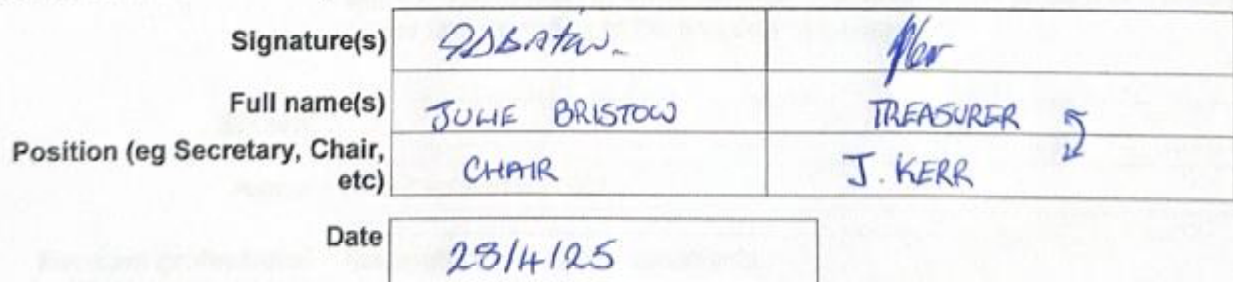 Signature(s)
Full name(s) JULIE BRISTOW TREASURER
Position (eg Secretary, Chair,
etc) CHAIR J. KERR
Date 28/4/25